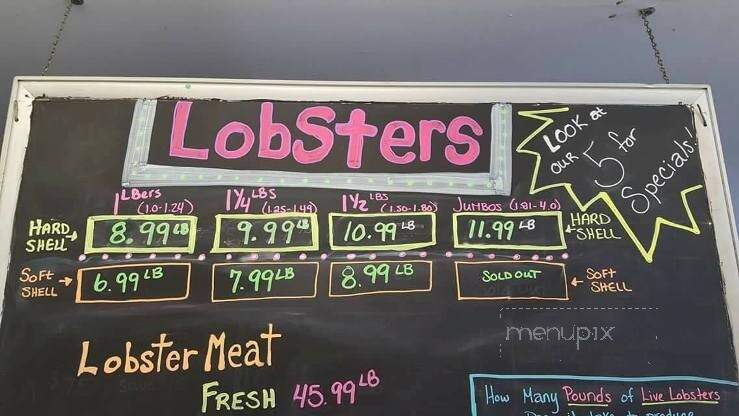 Lobsters
LOOK at
OUR 5 for
Specials!
1 LBers 1 1/4 LBS 1 1/2 LBS JUMBOS (1.81-4.0)
(1.0-1.24) (1.25-1.49) (1.50-1.80)
HARD SHELL 8.99 LB 9.99 LB 10.99 LB 11.99 LB HARD SHELL
SOFT SHELL 6.99 LB 7.99 LB 8.99 LB SOLD OUT SOFT SHELL
menupix
Lobster Meat
FRESH 45.99 LB
How Many Pounds of Live Lobsters
Does it take to produce